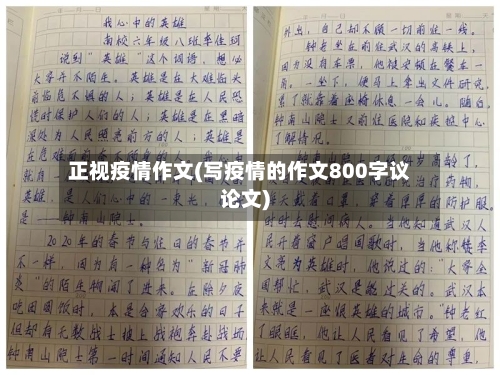 我心中的英雄
南校六年级八班李佳
说到“英雄”这个词语，想必
大家并不陌生。英雄是在大难临头
前临危不惧的人；英雄是在人民恐
慌时保护人们的人；英雄是在黑暗
深处为人民照亮前方的人；英雄是
英雄，是人们心中的一束光，
是——钟南山院士。
2020年的春节与往日的春节并
不一样，因为有一种名为“新冠肺
炎”的陌生物闯了进来。在除夕夜
吃团圆饭时，本是合家欢乐的日子
但却有无数战士披上战袍奔赴战场
钟南山院士第一时间通知人民不要
外出，自己却不顾一切前往一线。
钟老坐在前往武汉的高铁上，
因为没有车票，他被安顿在餐车一
角。一坐下，便马上拿出文件研究，
累了就靠着座椅休息一会儿。随后，
钟南山院士又前往医院和疾控中心
了解情况。
时时去慰问病人。当他知道武汉人
民开着窗户唱国歌时，当他称赞李
文亮为英雄时，他说过的：“大家全
国帮忙，武汉是能过关的。武汉本
来就是一座很英雄的城市。”钟老红
了眼眶，他让人民看见了希望，他
让人民看见了医者对生命的尊重，
正视疫情作文(写疫情的作文800字议
论文)